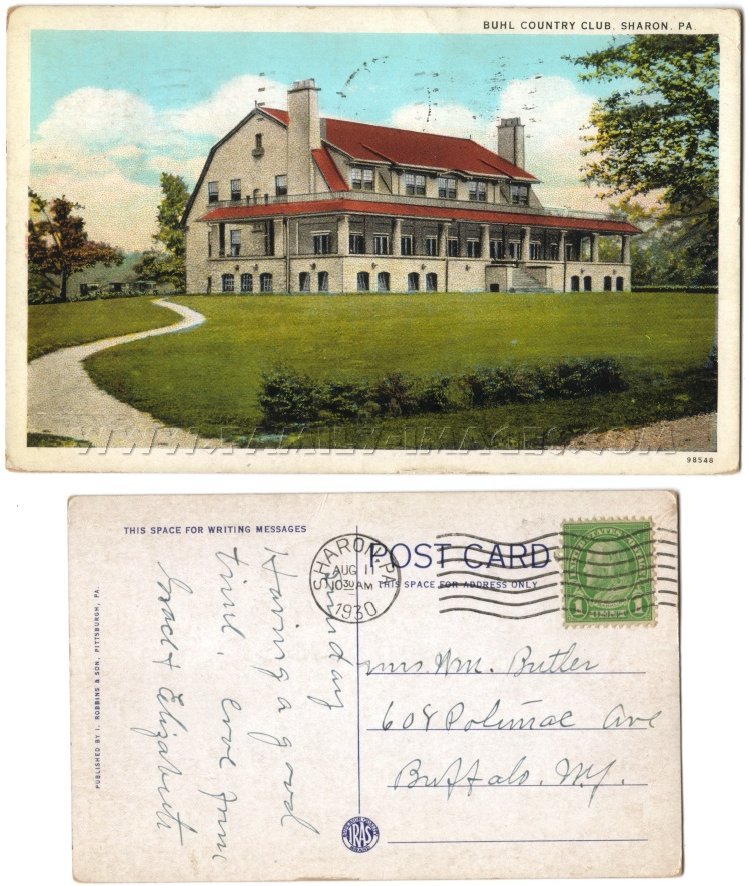 BUHL COUNTRY CLUB, SHARON, PA.
WWW.FAMILY-IMAGES.COM
98548
THIS SPACE FOR WRITING MESSAGES
POST CARD
THIS SPACE FOR ADDRESS ONLY
SHARON, PA.
AUG 11
10 30 AM
1930
UNITED STATES POSTAGE
1 1
Sunday
Having a good
time. Love from
Grace & Elizabeth
Mrs. Wm. Butler
608 Ave
Buffalo, N.Y.
PUBLISHED BY I. ROBBINS & SON, PITTSBURGH, PA.
IRAS